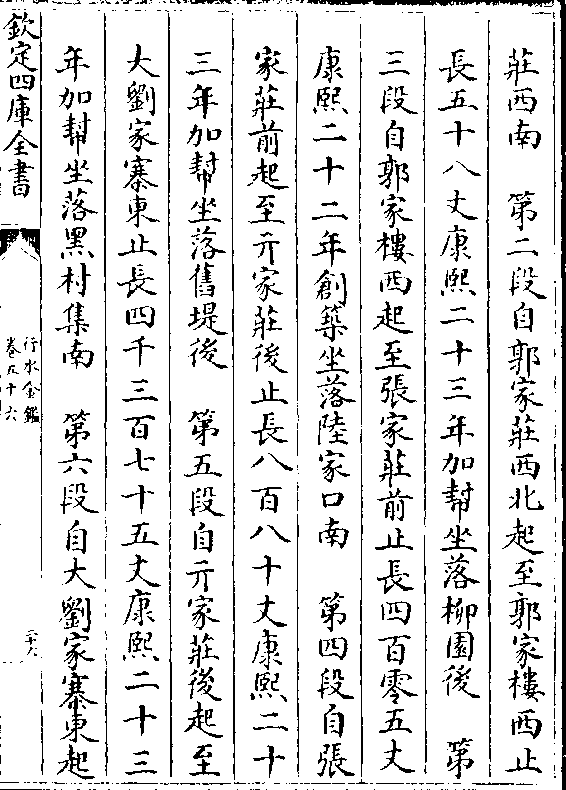 莊西南　第二段自郭家莊西北起至郭家樓西止
長五十八丈康熙二十三年加幇坐落柳園後　第
三段自郭家樓西起至張家莊前止長四百零五丈
康熙二十二年創築坐落陸家口南　第四段自張
家莊前起至亓家莊後止長八百八十丈康熙二十
三年加幇坐落舊堤後　第五段自亓家莊後起至
大劉家寨東止長四千三百七十五丈康熙二十三
年加幇坐落黑村集南　第六段自大劉家寨東起
欽定四庫全書
行水金鑑
卷五十六